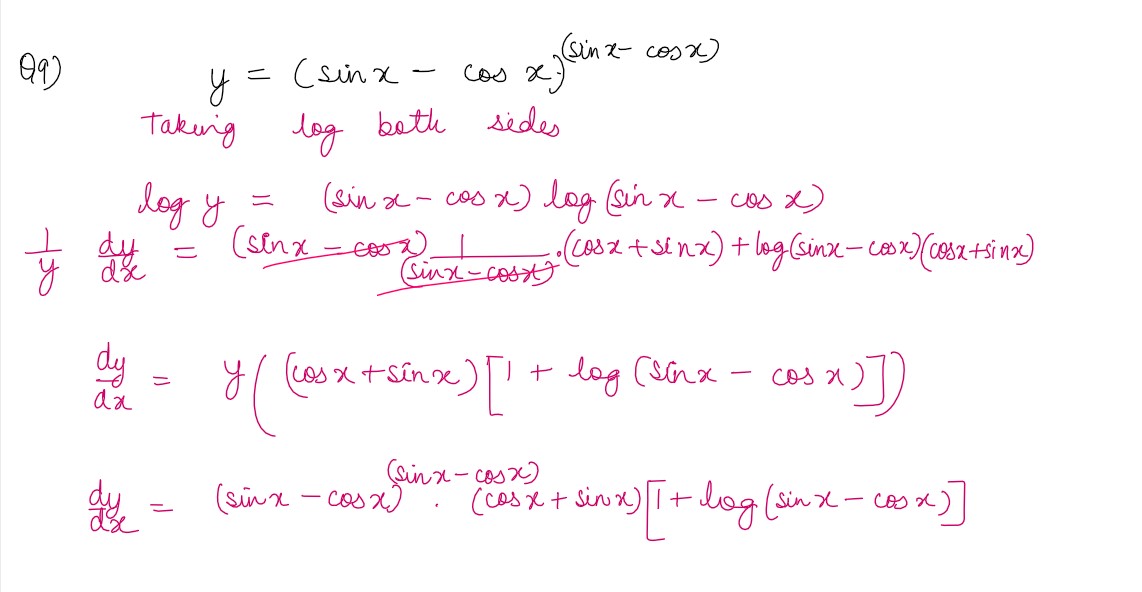 Q9) y = (sin x - cos x)^(sin x - cos x)
Taking log both sides
log y = (sin x - cos x) log (sin x - cos x)
1/y dy/dx = (sin x - cos x) 1/(sin x - cos x) . (cos x + sin x) + log(sin x - cos x)(cos x + sin x)
dy/dx = y((cos x + sin x)[1 + log (sin x - cos x)])
dy/dx = (sin x - cos x)^(sin x - cos x) . (cos x + sin x)[1 + log (sin x - cos x)]